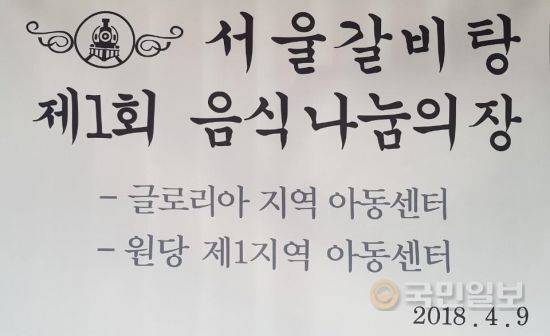 서울갈비탕
제1회 음식나눔의장
- 글로리아 지역 아동센터
- 원당 제1지역 아동센터
국민일보
2018.4.9